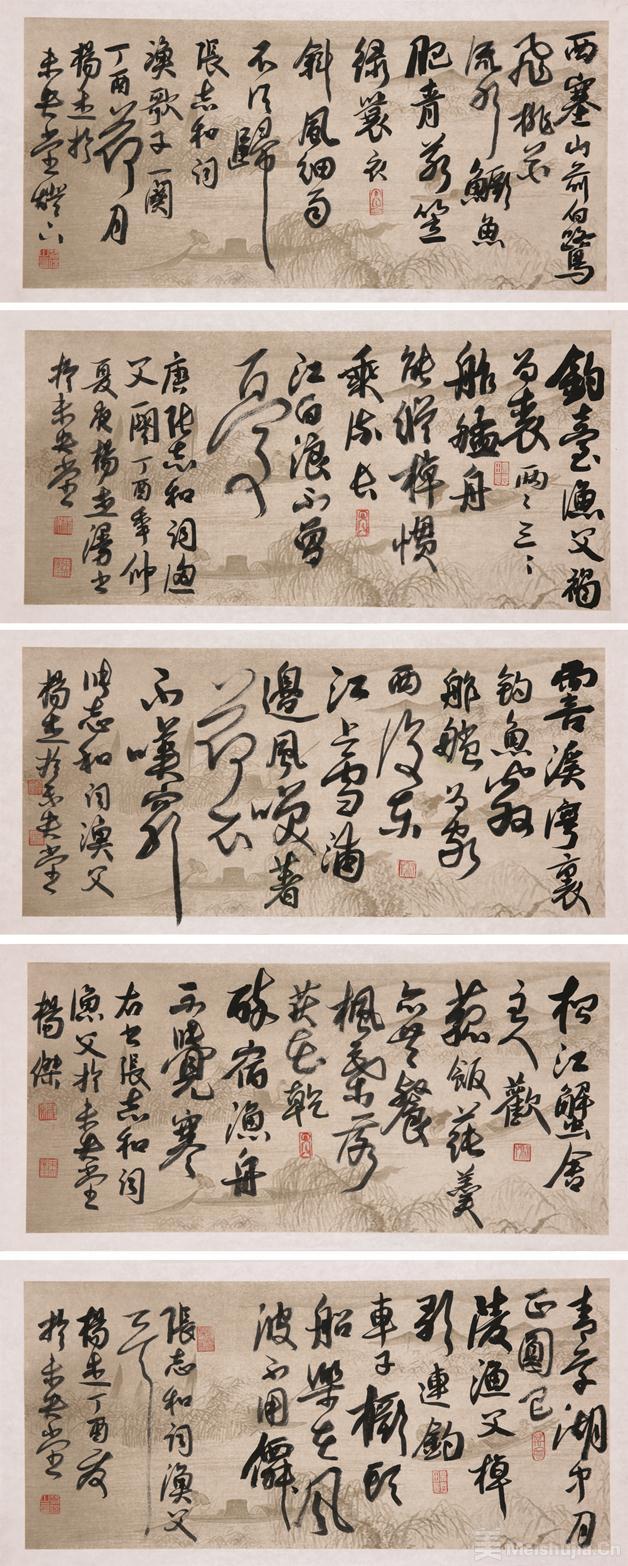 西塞山前白鷺
飛桃花
流水鱖魚
肥青箬笠
綠蓑衣
斜風細雨
不須歸
張志和詞
漁歌子一闋
丁酉荷月
楊傑於
未央堂燈下
釣臺漁父褐
為裘兩〻三〻
舴艋舟
能縱棹慣
乘流長
江白浪不曾
憂
唐張志和詞漁
父闋丁酉年仲
夏楊傑漫書
於未央堂
霅溪灣裏
釣魚翁
舴艋為家
西復東
江上雪浦
邊風笑著
荷衣
不嘆窮
張志和詞漁父
楊傑於未央堂
松江蟹舍
主人歡
菰飯蓴羹
亦共餐
楓葉落
荻花乾
醉宿漁舟
不覺寒
右書張志和詞
漁父於未央堂
楊傑
青草湖中月
正圓巴
陵漁父棹
歌連釣
車子橛頭
船樂在風
波不用僊
張志和詞漁父
楊傑丁酉夏
於未央堂
美 Meishujia.Cn